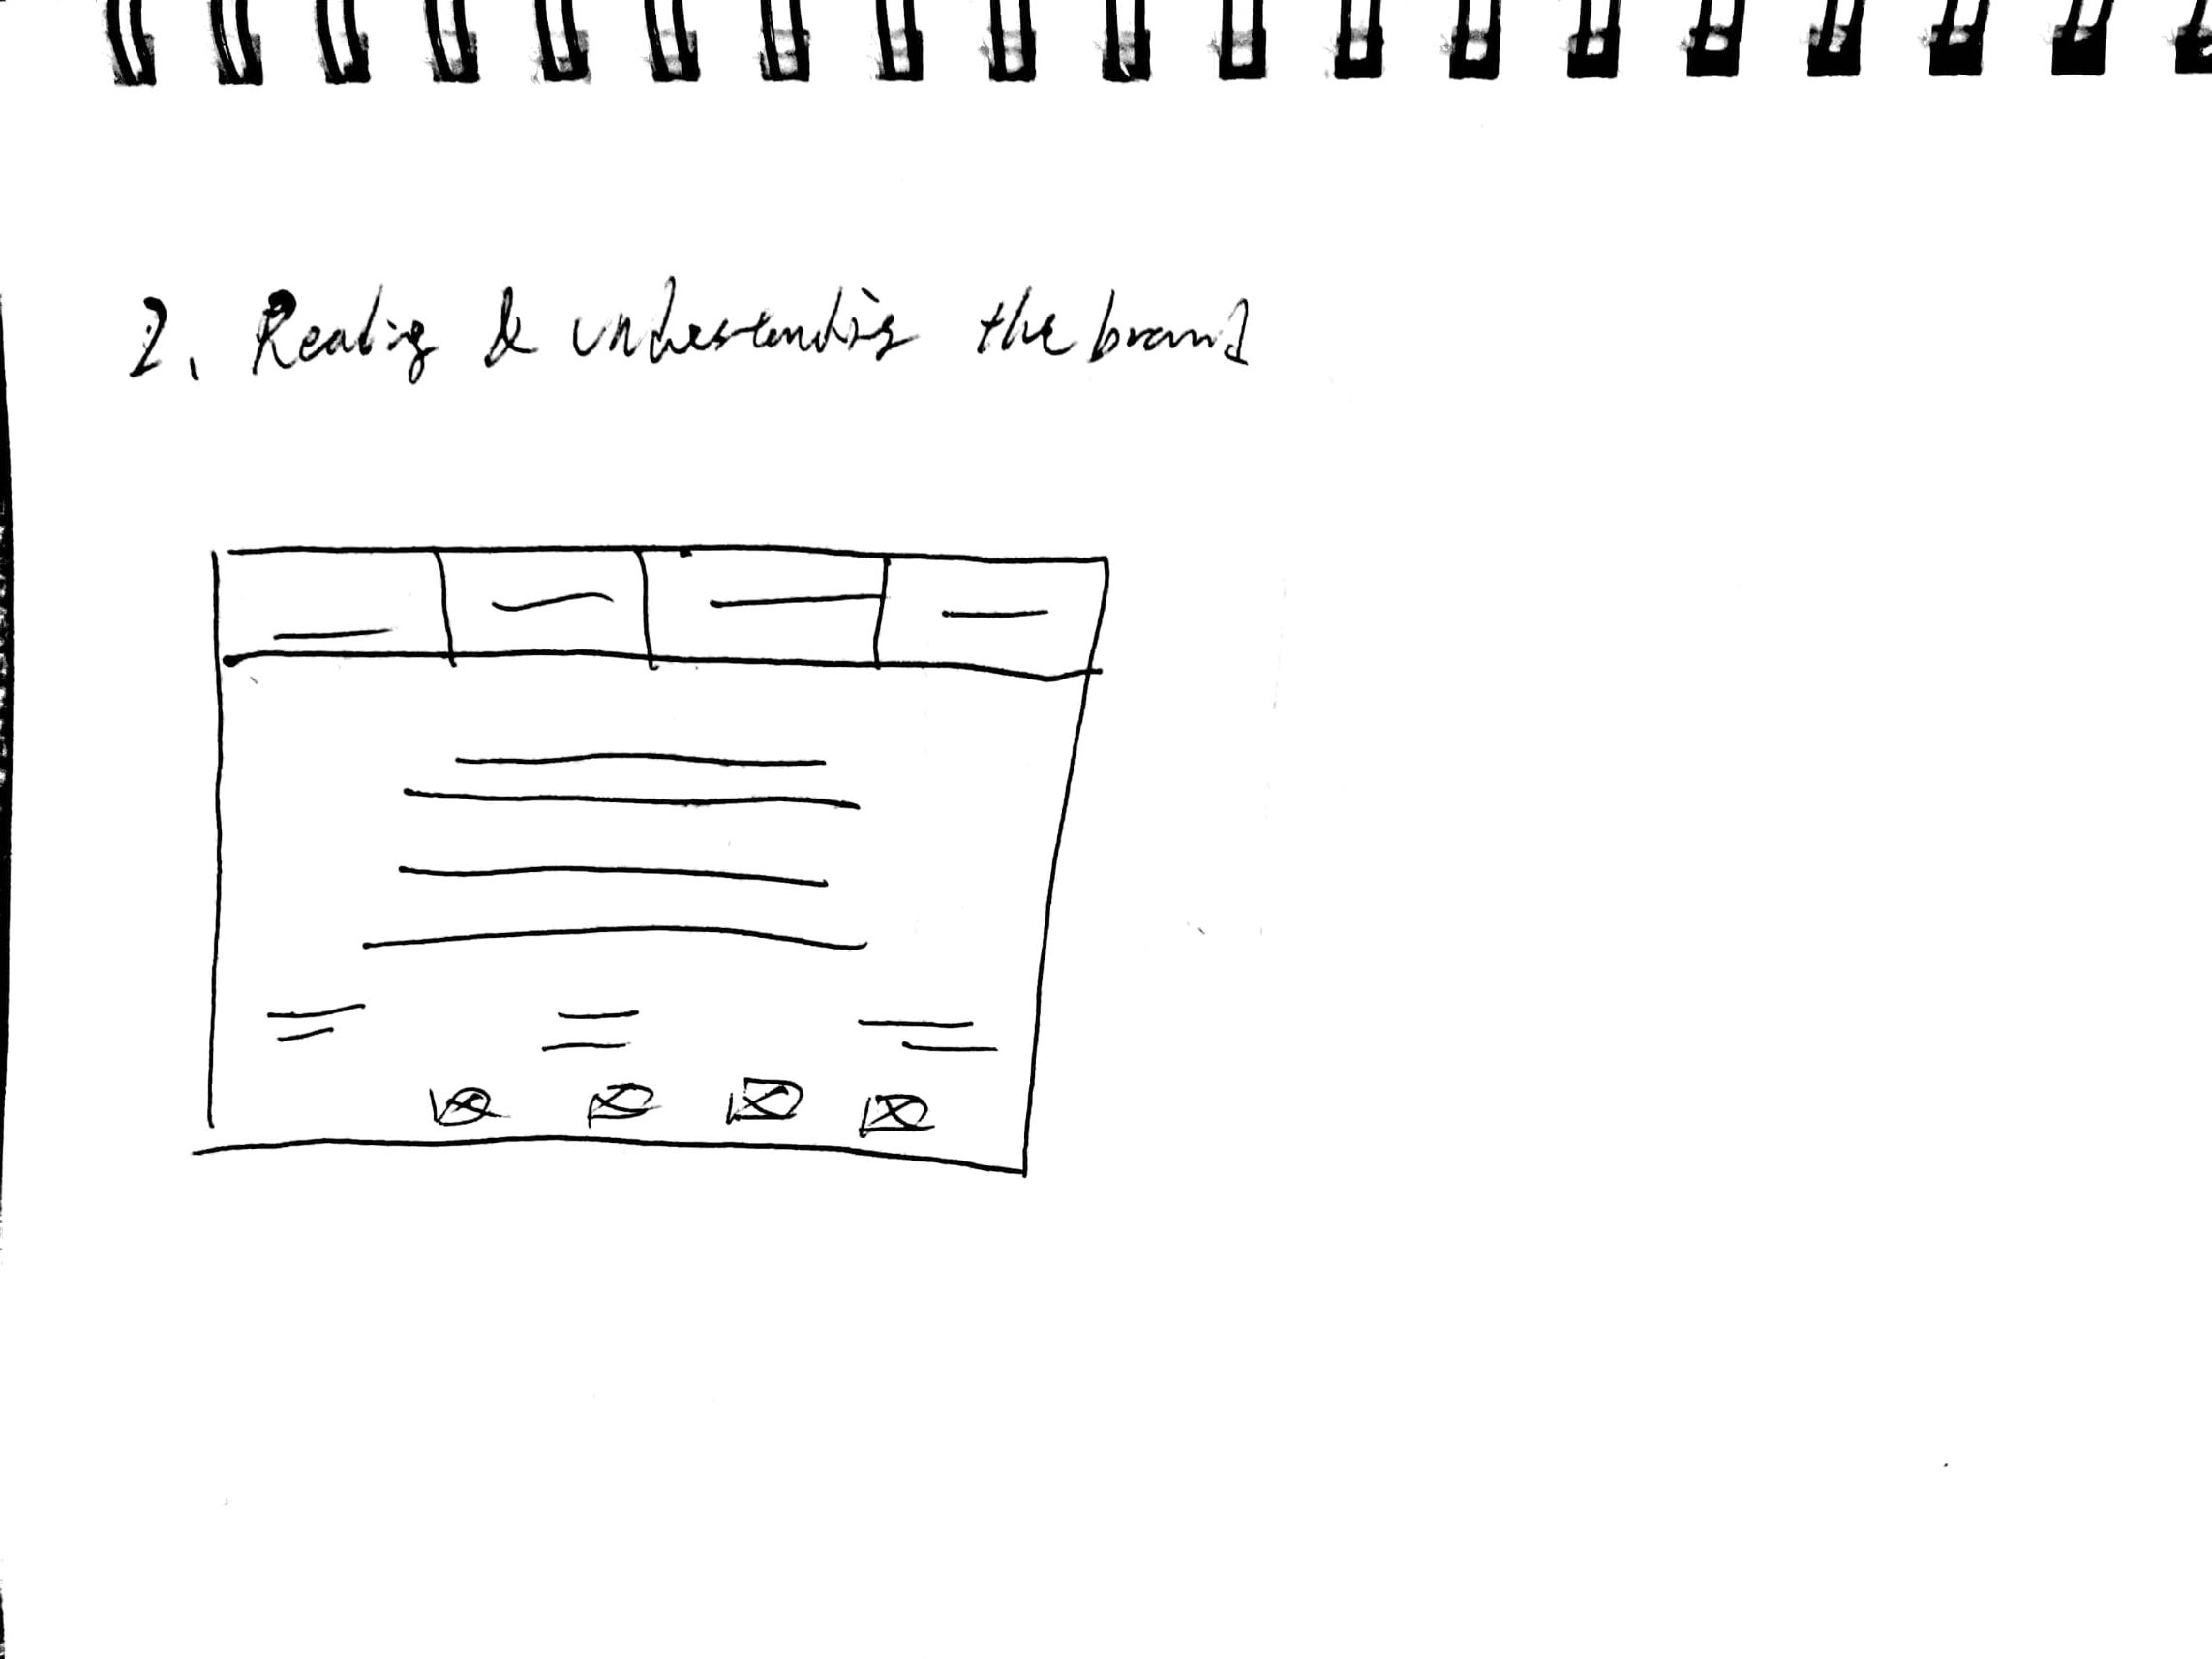 2. Reading & understanding the brand